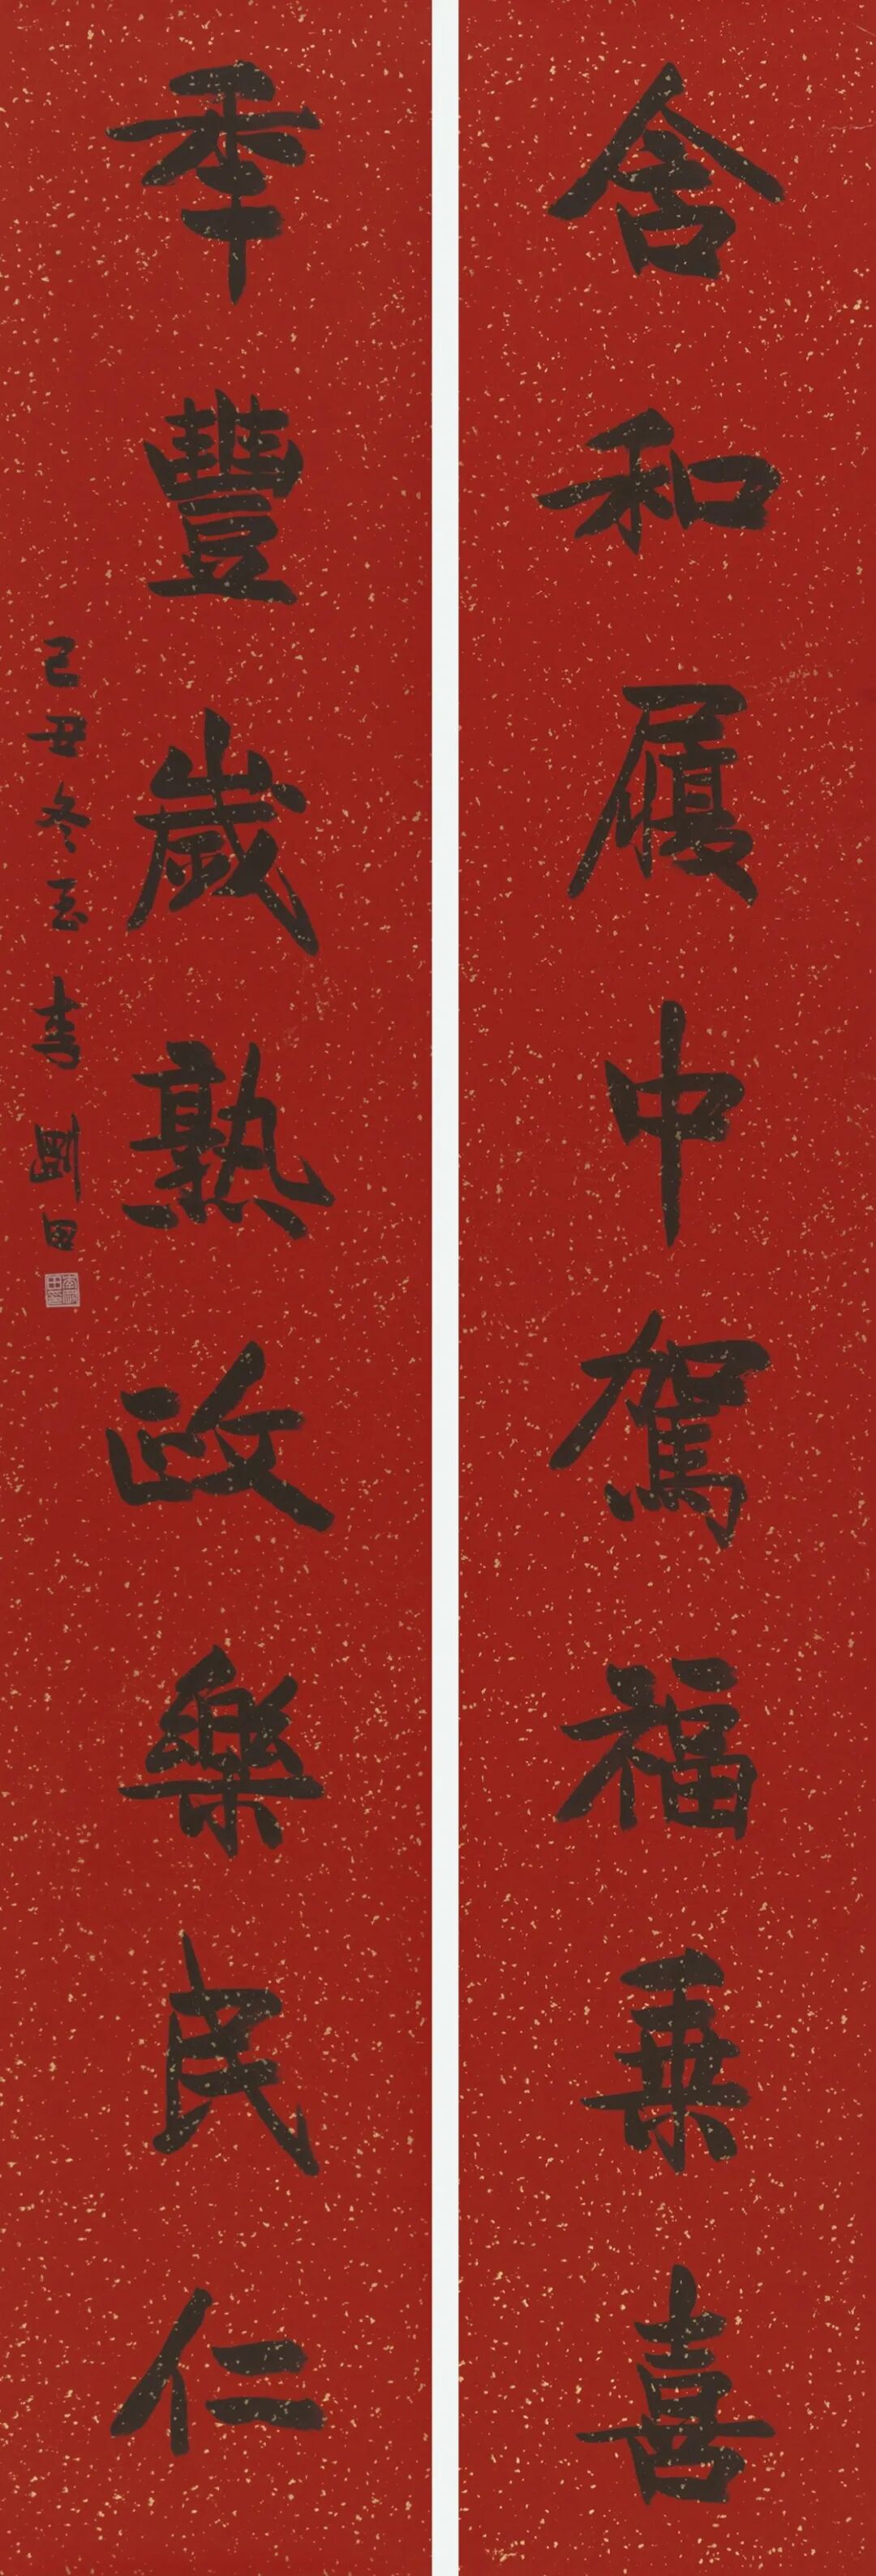 含和履中駕福乘喜
年豐歲熟政樂民仁
己丑冬至李剛田